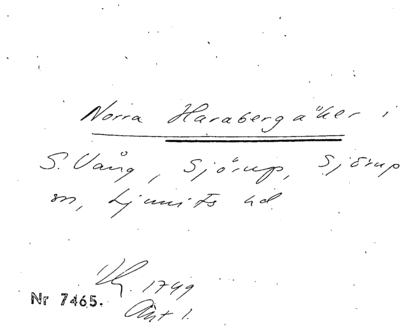 Norra Harabergaåker i
S. Vång, Sjörup, Sjörup
sn, Ljunits hd.
Lh. 1749
Akt 1.
Nr 7465.